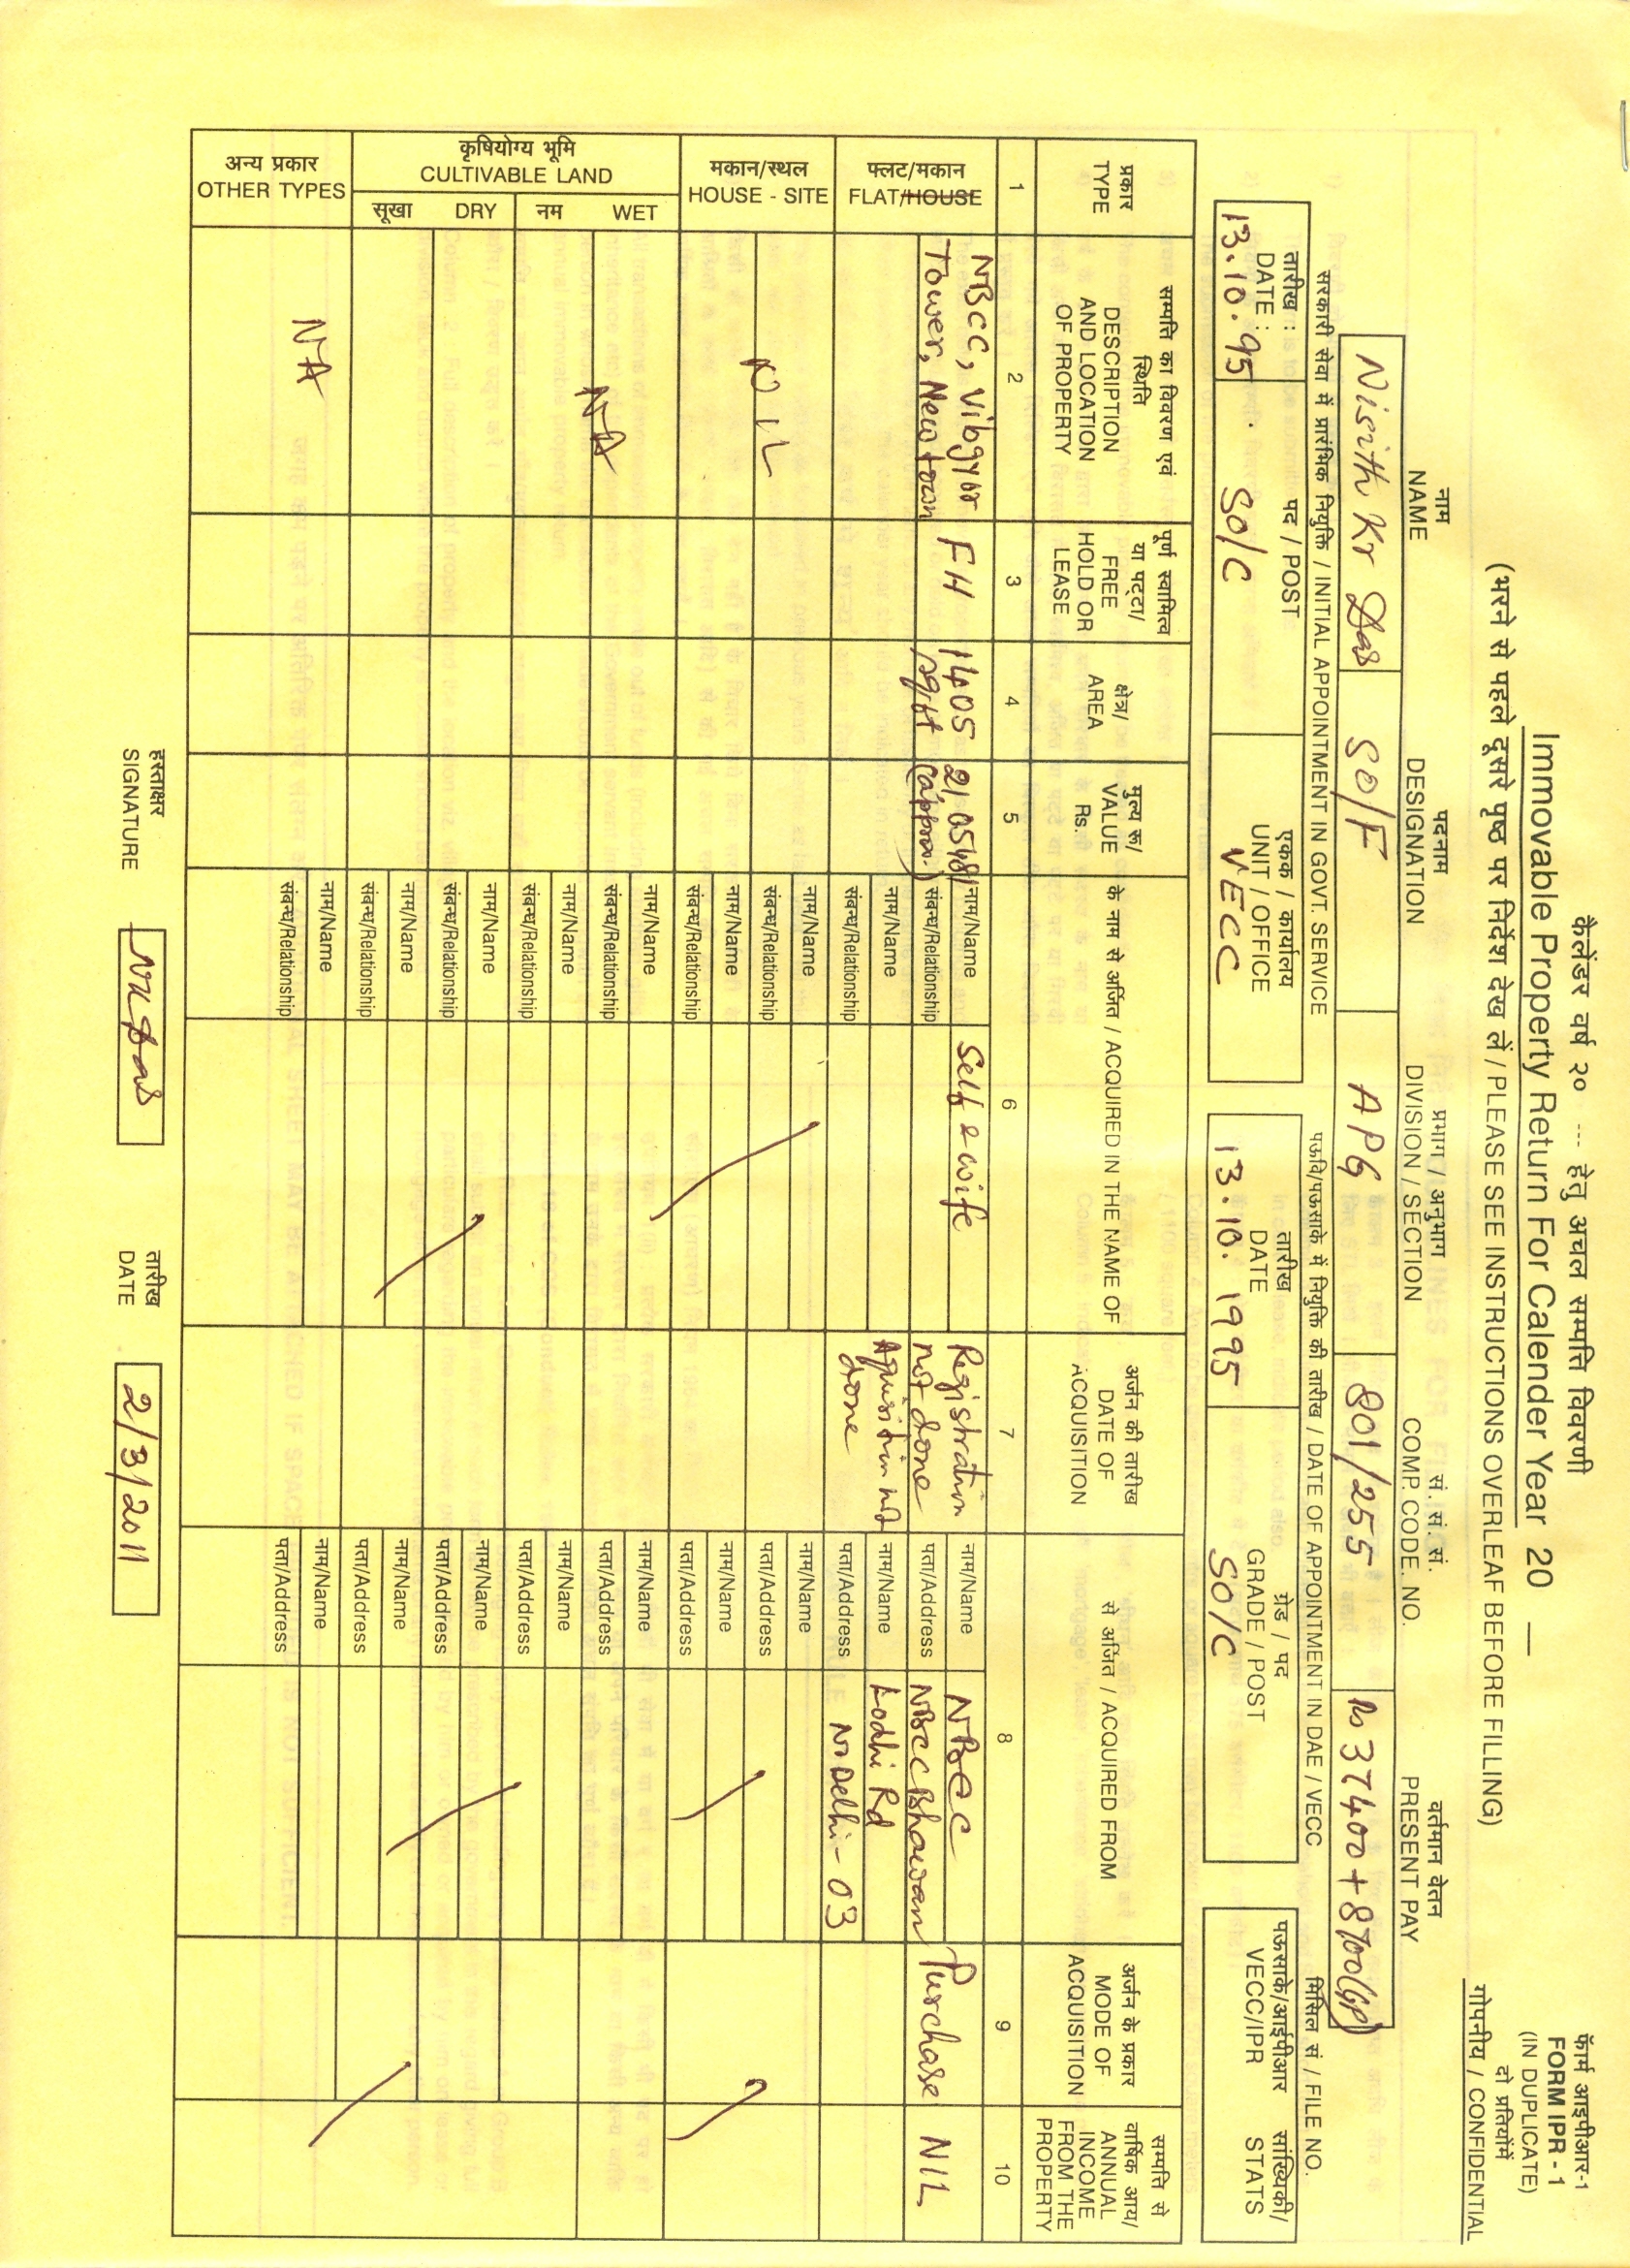 फॉर्म आइपीआर-1
FORM IPR - 1
(IN DUPLICATE)
दो प्रतियोंमें
गोपनीय / CONFIDENTIAL
कैलेंडर वर्ष २० --- हेतु अचल सम्पत्ति विवरणी
Immovable Property Return For Calender Year 20 —
(भरने से पहले दूसरे पृष्ठ पर निर्देश देख लें / PLEASE SEE INSTRUCTIONS OVERLEAF BEFORE FILLING)
नाम पदनाम प्रभाग / अनुभाग सं. सं. सं. वर्तमान वेतन
NAME DESIGNATION DIVISION / SECTION COMP. CODE. NO. PRESENT PAY
Nisith Kr Das SO/F APG 801/255 Rs 37400+8700(GP)
सरकारी सेवा में प्रारंभिक नियुक्ति / INITIAL APPOINTMENT IN GOVT. SERVICE
पऊवि/पऊसाके में नियुक्ति की तारीख / DATE OF APPOINTMENT IN DAE / VECC
मिसिल सं / FILE NO.
तारीख : पद / POST एकक / कार्यालय तारीख ग्रेड / पद पऊसाके/आईपीआर सांख्यिकी/
DATE : UNIT / OFFICE DATE GRADE / POST VECC/IPR STATS
13.10.95. SO/C VECC 13.10.1995 SO/C
प्रकार
TYPE
सम्पत्ति का विवरण एवं
स्थिति
DESCRIPTION
AND LOCATION
OF PROPERTY
पूर्ण स्वामित्व
या पट्टा/
FREE
HOLD OR
LEASE
क्षेत्र/
AREA
मुल्य रू/
VALUE
Rs.
के नाम से अर्जित / ACQUIRED IN THE NAME OF
अर्जन की तारीख
DATE OF
ACQUISITION
से अर्जित / ACQUIRED FROM
अर्जन के प्रकार
MODE OF
ACQUISITION
सम्पत्ति से
वार्षिक आय/
ANNUAL
INCOME
FROM THE
PROPERTY
1 2 3 4 5 6 7 8 9 10
फ्लट/मकान
FLAT/HOUSE
NBCC, Vibgyor
Tower, New town
FH
1405
sqft
2105481
(approx.)
नाम/Name Self & wife
संबन्ध/Relationship
नाम/Name
संबन्ध/Relationship
Registration
not done
Aquisition not
done
नाम/Name NBCC
पता/Address NBCC Bhawan
नाम/Name Lodhi Rd
पता/Address N. Delhi-03
Purchase
NIL
मकान/स्थल
HOUSE - SITE
NIL
नाम/Name
संबन्ध/Relationship
नाम/Name
संबन्ध/Relationship
नाम/Name
पता/Address
नाम/Name
पता/Address
कृषियोग्य भूमि
CULTIVABLE LAND
नम WET
NA
नाम/Name
संबन्ध/Relationship
नाम/Name
संबन्ध/Relationship
नाम/Name
पता/Address
नाम/Name
पता/Address
सूखा DRY
नाम/Name
संबन्ध/Relationship
नाम/Name
संबन्ध/Relationship
नाम/Name
पता/Address
नाम/Name
पता/Address
अन्य प्रकार
OTHER TYPES
NA
नाम/Name
संबन्ध/Relationship
नाम/Name
पता/Address
हस्ताक्षर
SIGNATURE
NK Das
तारीख
DATE
2/3/2011